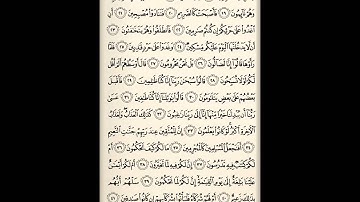 وَهُمْ نَآئِمُونَ ١٩ فَأَصْبَحَتْ كَٱلصَّرِيمِ ٢٠ فَتَنَادَوْا۟ مُصْبِحِينَ ٢١ أَنِ
ٱغْدُوا۟ عَلَىٰ حَرْثِكُمْ إِن كُنتُمْ صَٰرِمِينَ ٢٢ فَٱنطَلَقُوا۟ وَهُمْ يَتَخَٰفَتُونَ ٢٣
أَن لَّا يَدْخُلَنَّهَا ٱلْيَوْمَ عَلَيْكُم مِّسْكِينٌ ٢٤ وَغَدَوْا۟ عَلَىٰ حَرْدٍ قَٰدِرِينَ ٢٥
فَلَمَّا رَأَوْهَا قَالُوٓا۟ إِنَّا لَضَآلُّونَ ٢٦ بَلْ نَحْنُ مَحْرُومُونَ ٢٧ قَالَ أَوْسَطُهُمْ أَلَمْ أَقُل
لَّكُمْ لَوْلَا تُسَبِّحُونَ ٢٨ قَالُوا۟ سُبْحَٰنَ رَبِّنَآ إِنَّا كُنَّا ظَٰلِمِينَ ٢٩ فَأَقْبَلَ
بَعْضُهُمْ عَلَىٰ بَعْضٍ يَتَلَٰوَمُونَ ٣٠ قَالُوا۟ يَٰوَيْلَنَآ إِنَّا كُنَّا طَٰغِينَ ٣١ عَسَىٰ
رَبُّنَآ أَن يُبْدِلَنَا خَيْرًا مِّنْهَآ إِنَّآ إِلَىٰ رَبِّنَا رَٰغِبُونَ ٣٢ كَذَٰلِكَ ٱلْعَذَابُ وَلَعَذَابُ
ٱلْءَاخِرَةِ أَكْبَرُ لَوْ كَانُوا۟ يَعْلَمُونَ ٣٣ إِنَّ لِلْمُتَّقِينَ عِندَ رَبِّهِمْ جَنَّٰتِ ٱلنَّعِيمِ
٣٤ أَفَنَجْعَلُ ٱلْمُسْلِمِينَ كَٱلْمُجْرِمِينَ ٣٥ مَا لَكُمْ كَيْفَ تَحْكُمُونَ ٣٦ أَمْ
لَكُمْ كِتَٰبٌ فِيهِ تَدْرُسُونَ ٣٧ إِنَّ لَكُمْ فِيهِ لَمَا تَخَيَّرُونَ ٣٨ أَمْ لَكُمْ أَيْمَٰنٌ
عَلَيْنَا بَٰلِغَةٌ إِلَىٰ يَوْمِ ٱلْقِيَٰمَةِ إِنَّ لَكُمْ لَمَا تَحْكُمُونَ ٣٩ سَلْهُمْ أَيُّهُم
بِذَٰلِكَ زَعِيمٌ ٤٠ أَمْ لَهُمْ شُرَكَآءُ فَلْيَأْتُوا۟ بِشُرَكَآئِهِمْ إِن كَانُوا۟ صَٰدِقِينَ ٤١